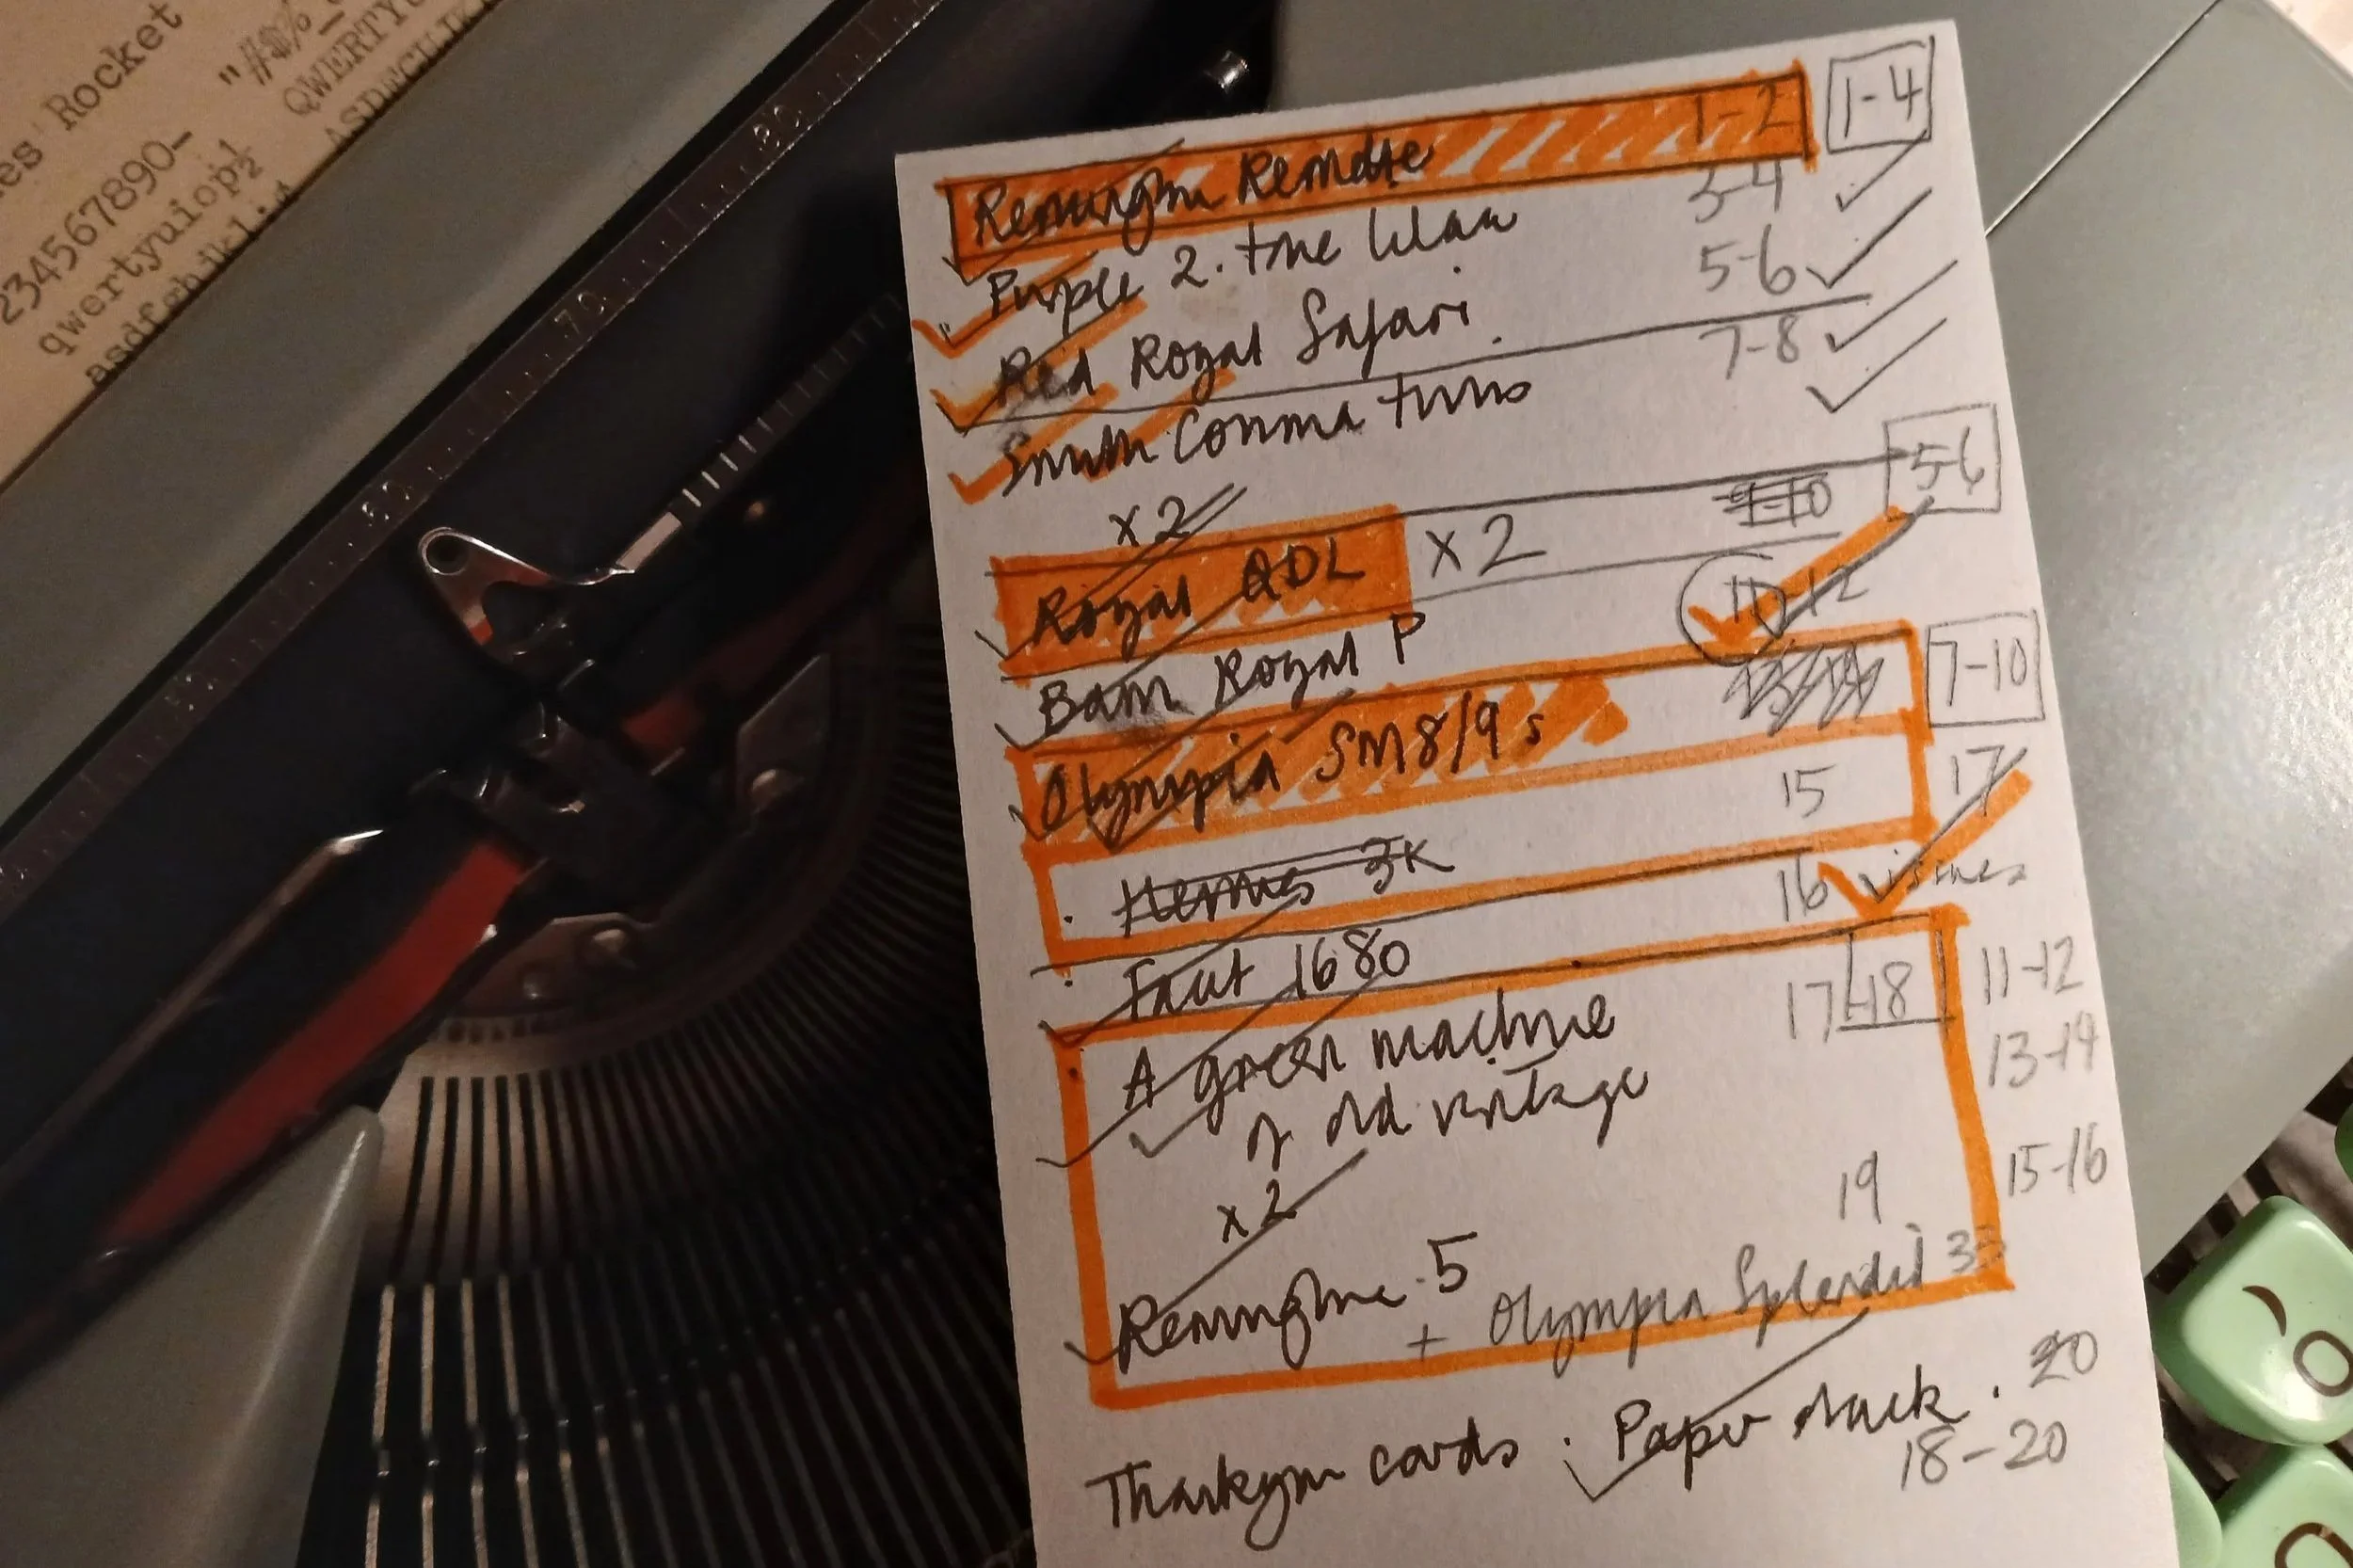 es Rocket
"#$%_
QWERTYU
234567890-
qwertyuiop½
asdfghjkl;
80
70
60
50
Remington Remette 1-2
1-4
Purple 2-tone lilac 3-4
Red Royal Safari. 5-6
Smith Corona twins 7-8
x2
5-6
Royal QDL x2 9-10
Barn Royal P 11-12
Olympia SM8/9s 13/14
7-10
Hermes 3K 15
17
Facit 1680 16
A green machine 17-18
11-12
of old vintage
13-14
x2 19
15-16
Remington 5
+ Olympia Splendid 33
Thankyou cards : Paper stack . 20
18-20